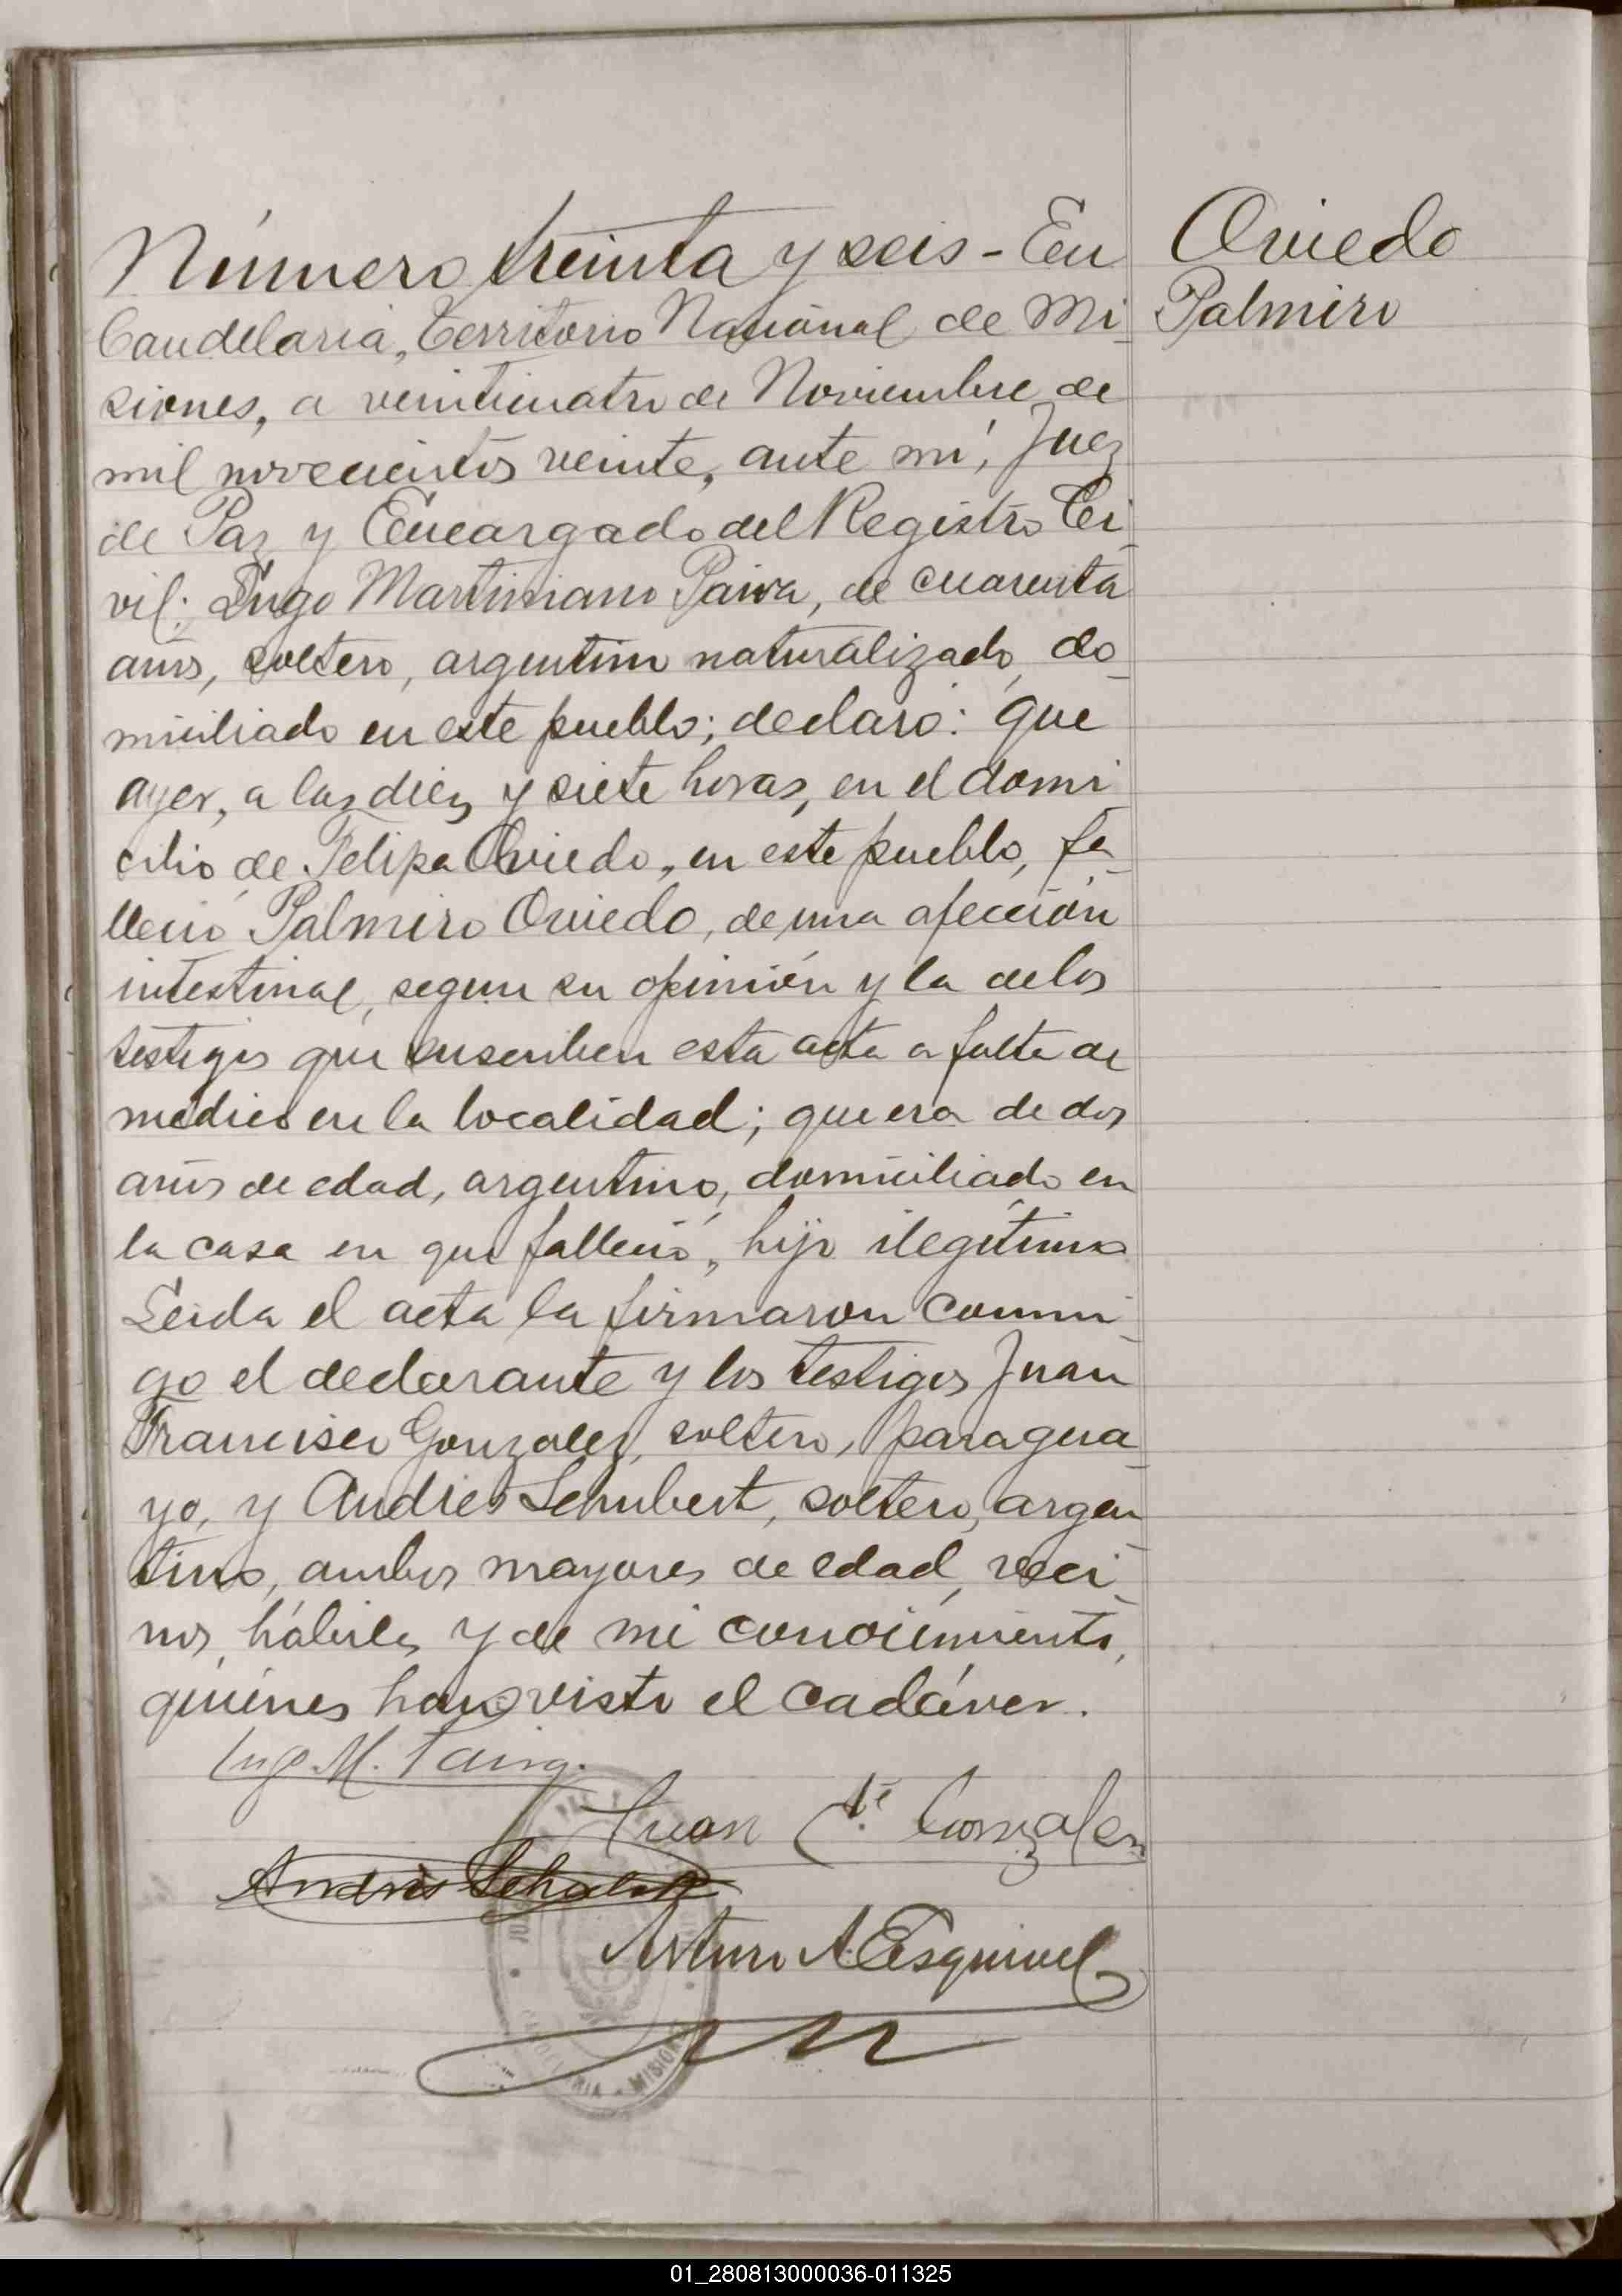 Número treinta y seis - En
Candelaria, Territorio Nacional de Mi
siones, a veinticuatro de Noviembre de
mil novecientos veinte, ante mi, Juez
de Paz y Encargado del Registro Ci
vil: Martiniano Paiva, de cuarenta
años, soltero, argentino naturalizado, do
miciliado en este pueblo; declaró: que
ayer, a las diez y siete horas, en el domi
cilio de Felipa Oviedo, en este pueblo, fa
lleció Palmiro Oviedo, de una afección
intestinal, segun su opinión y la de los
testigos que suscriben esta acta a falta de
medico en la localidad; que era de dos
años de edad, argentino, domiciliado en
la casa en que falleció, hijo ilegítimo
Leida el acta la firmaron conmi
go el declarante y los testigos Juan
Francisco Gonzalez, soltero, paragua
yo, y Andrés Schubert, soltero, argen
tino, ambos mayores de edad, veci
nos, hábiles y de mi conocimiento,
quiénes han visto el cadáver.
M. Paiva.
Juan Gonzalez
Andrés
Arturo A. Esquivel
MISIONES
Oviedo
Palmiro
01_280813000036-011325